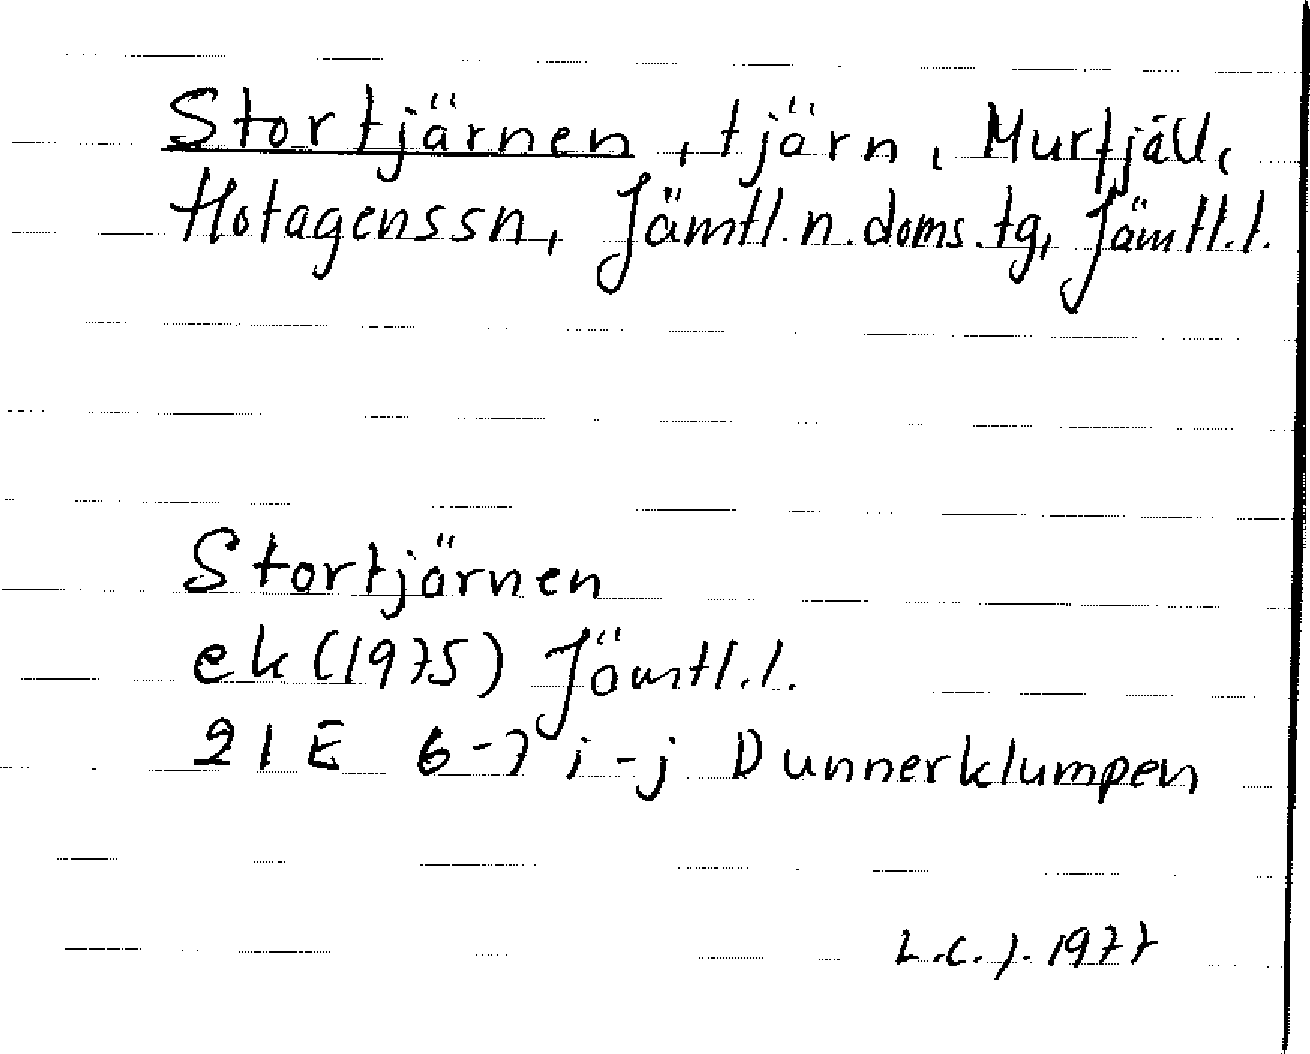 Stortjärnen, tjärn, Murfjäll,
Hotagenssn, Jämtl. n. doms. tg, Jämtl. l.
Stortjärnen
ek (1975) Jämtl. l.
21 E 6-7 i-j Dunnerklumpen
L.C.J. 1977